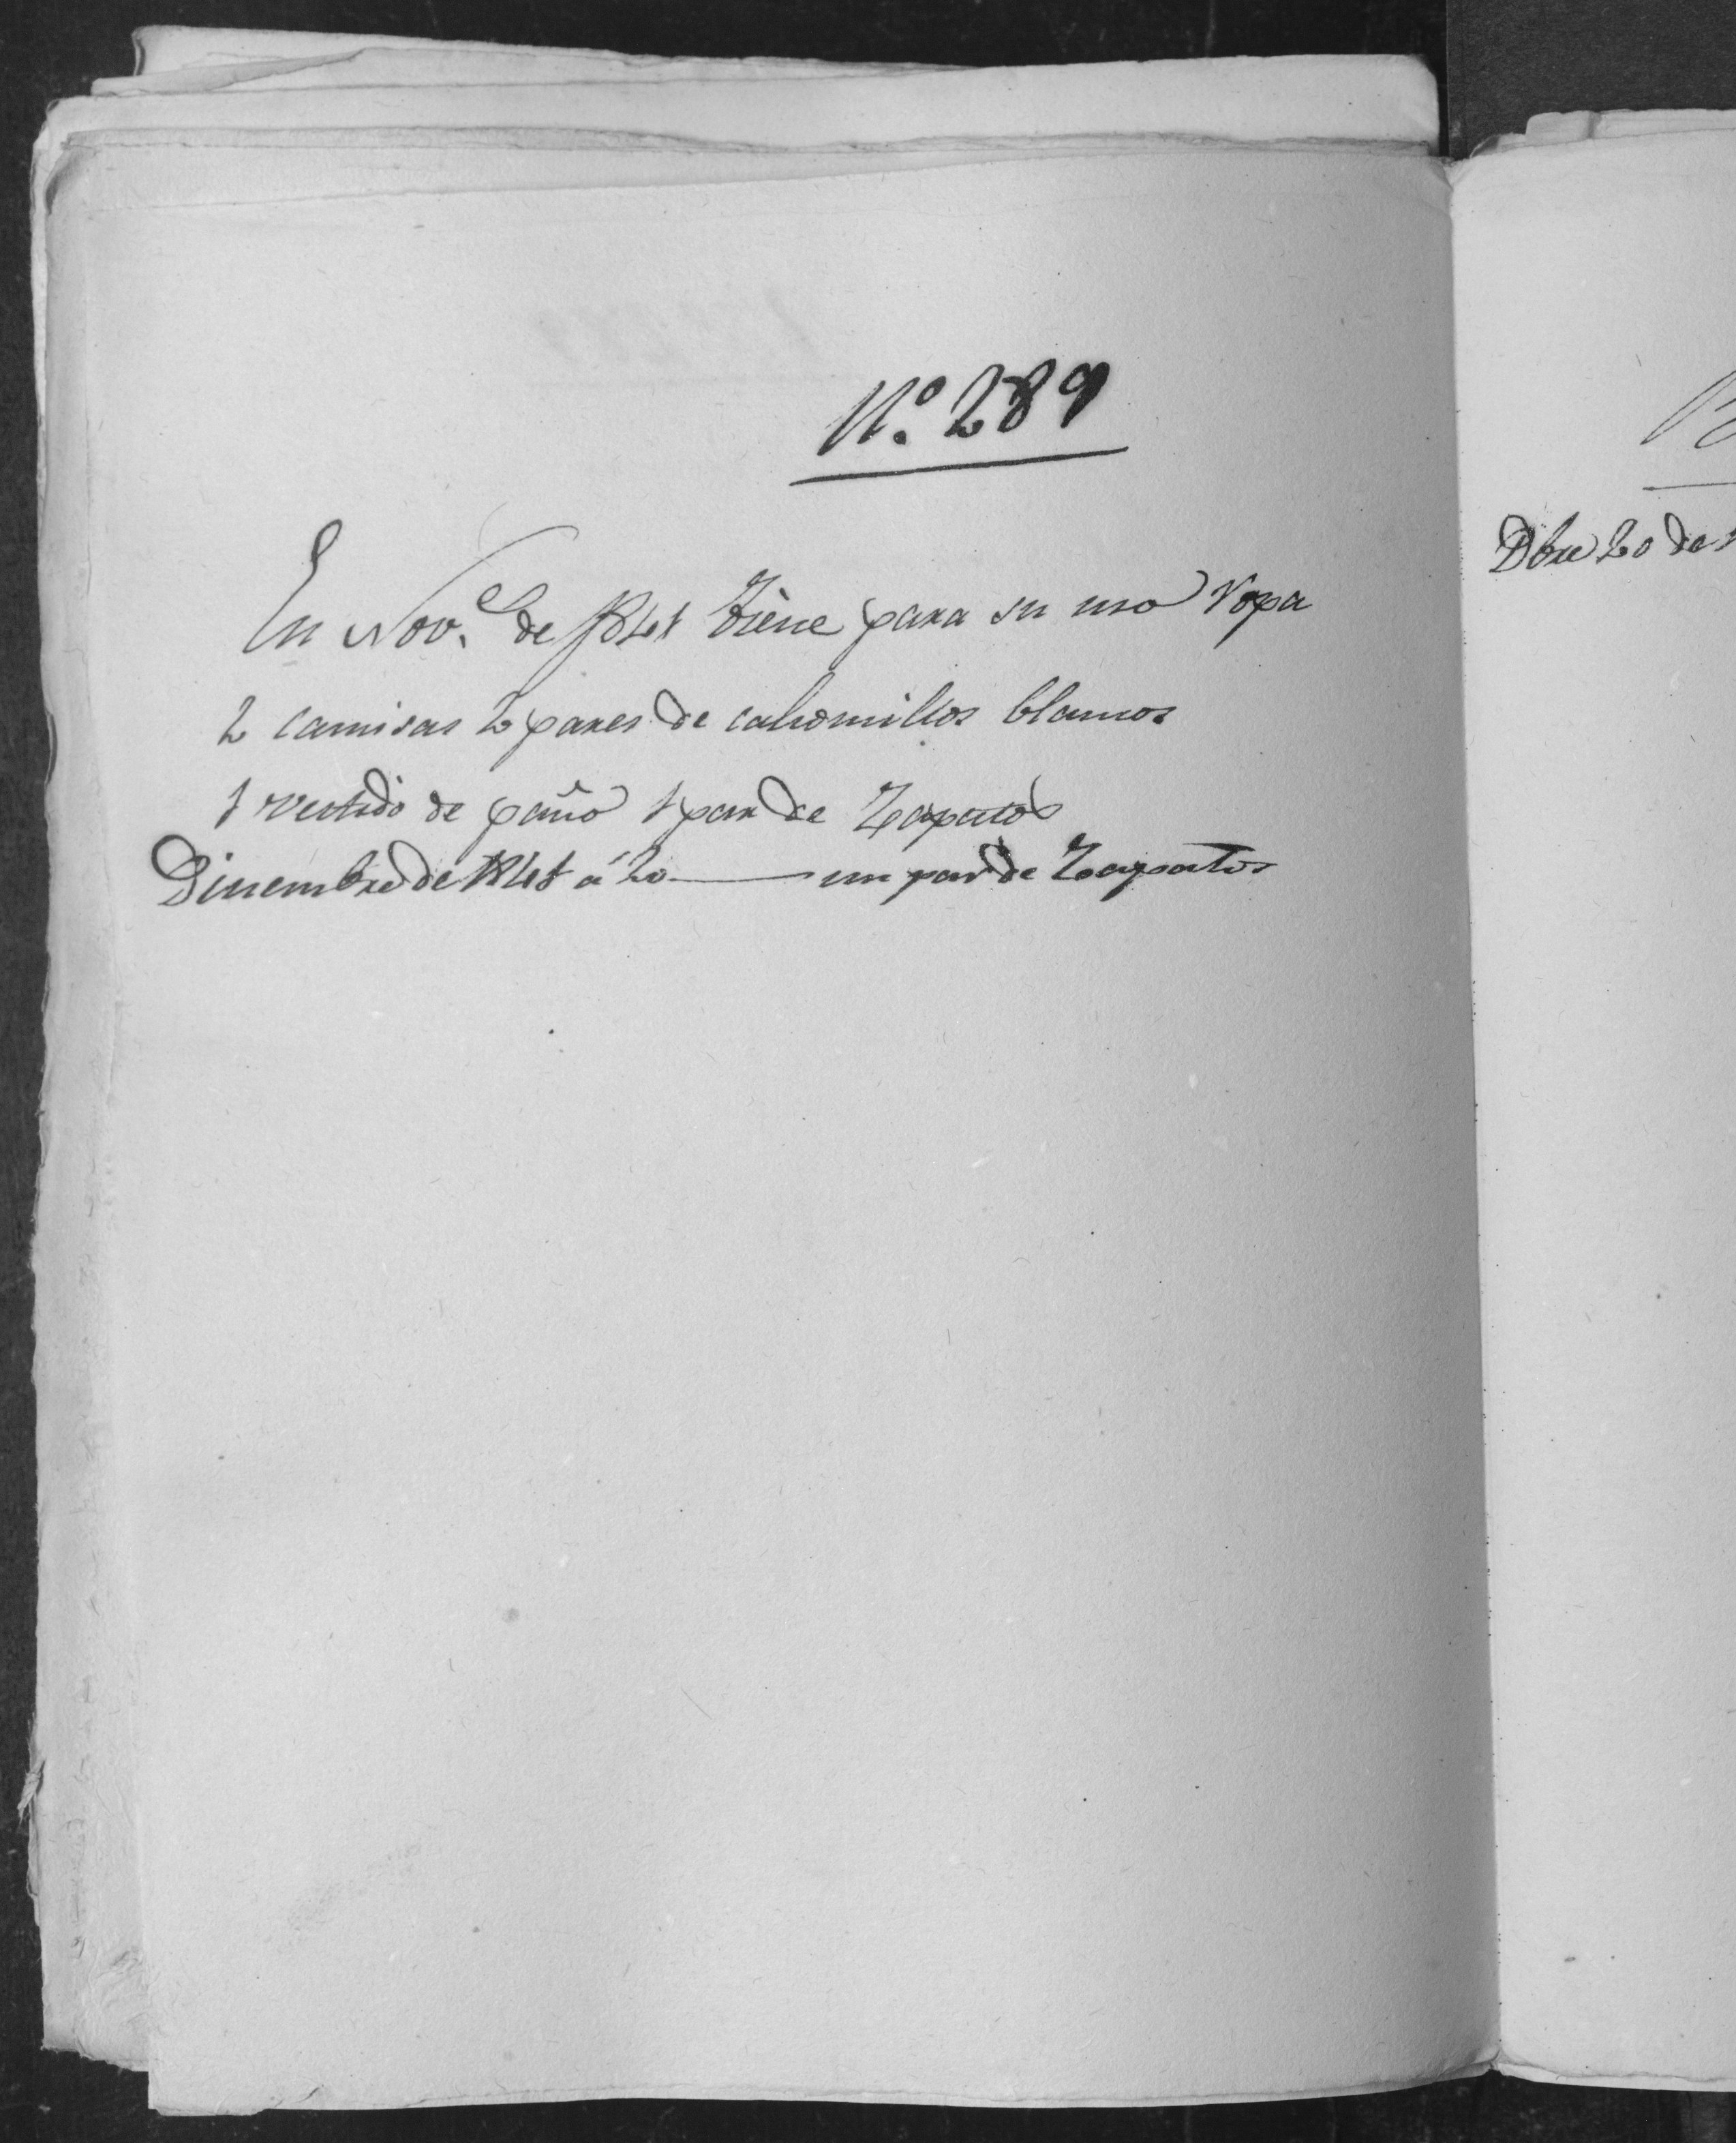 N.º 289
En Nov.e de 1841 tiene para su uso ropa
2 camisas 2 pares de calsonsillos blancos
1 vestido de paño 1 par de Zapatos
Diciembre de 1841 á 20 — un par de Zapatos
Dbre 20 de